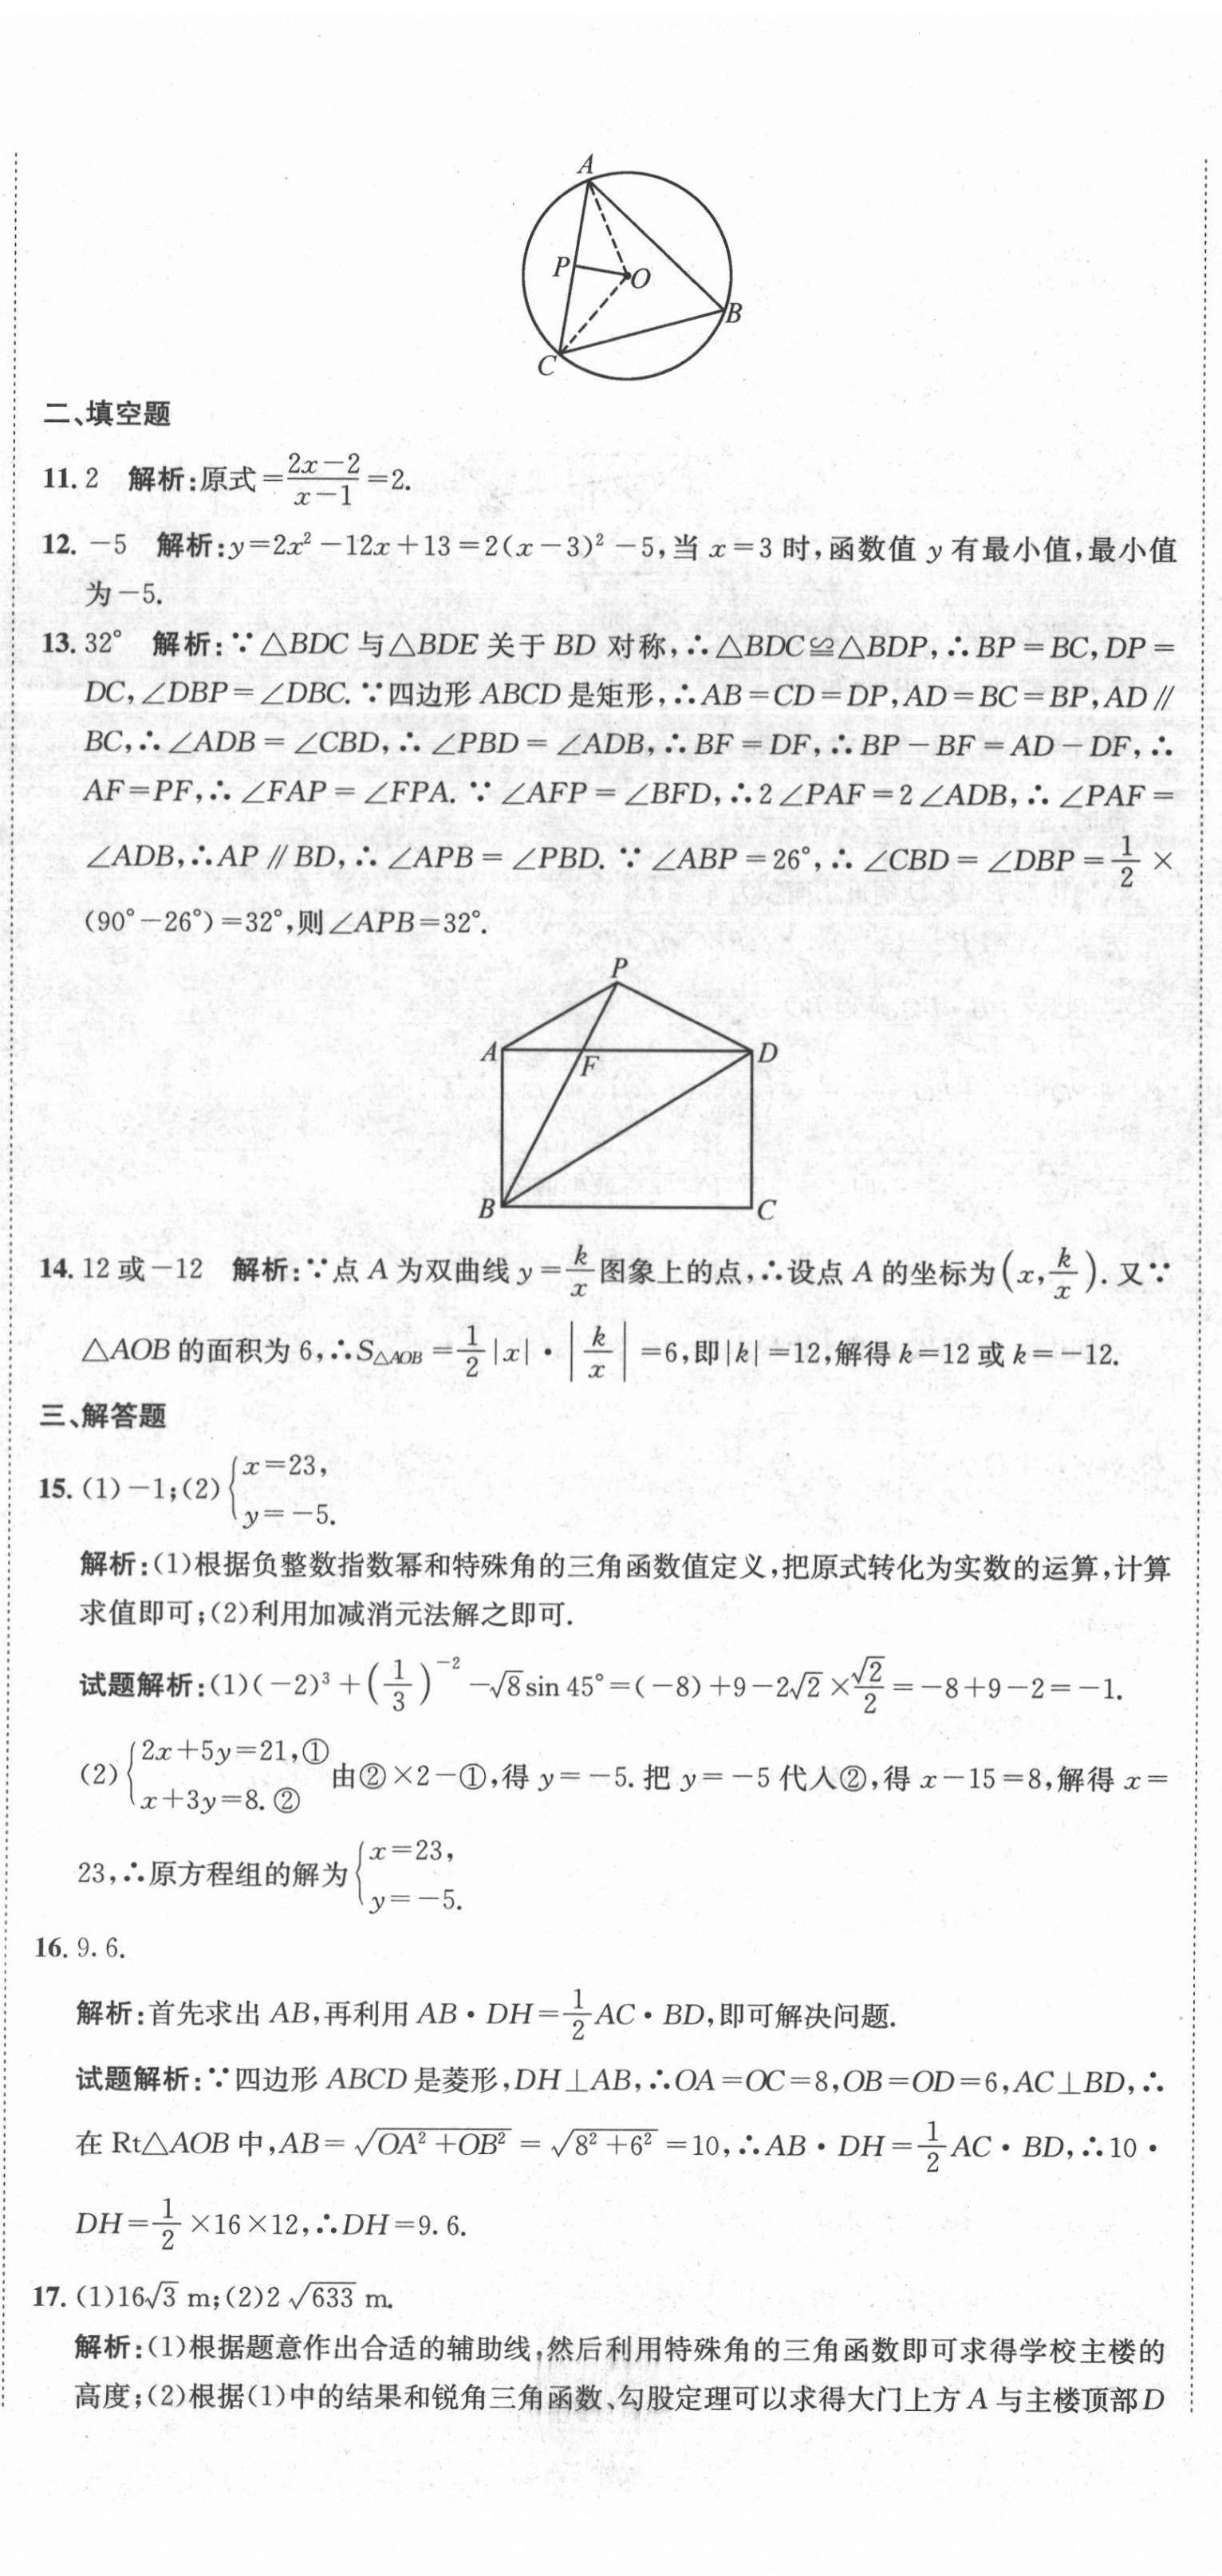 A
P
O
B
C
二、填空题
11. 2 解析:原式=\frac{2x-2}{x-1}=2.
12. -5 解析:y=2x²-12x+13=2(x-3)²-5,当 x=3 时,函数值 y 有最小值,最小值
为-5.
13. 32° 解析:∵△BDC 与△BDE 关于 BD 对称,∴△BDC≌△BDP,∴BP=BC,DP=
DC,∠DBP=∠DBC.∵四边形 ABCD 是矩形,∴AB=CD=DP,AD=BC=BP,AD∥
BC,∴∠ADB=∠CBD,∴∠PBD=∠ADB,∴BF=DF,∴BP-BF=AD-DF,∴
AF=PF,∴∠FAP=∠FPA.∵∠AFP=∠BFD,∴2∠PAF=2∠ADB,∴∠PAF=
∠ADB,∴AP∥BD,∴∠APB=∠PBD.∵∠ABP=26°,∴∠CBD=∠DBP=\frac{1}{2}×
(90°-26°)=32°,则∠APB=32°.
P
A
F
D
B
C
14. 12 或-12 解析:∵点 A 为双曲线 y=\frac{k}{x}图象上的点,∴设点 A 的坐标为(x,\frac{k}{x}).又∵
△AOB 的面积为 6,∴S△AOB=\frac{1}{2}|x|·|\frac{k}{x}|=6,即|k|=12,解得 k=12 或 k=-12.
三、解答题
15. (1)-1;(2){x=23,
y=-5.
解析:(1)根据负整数指数幂和特殊角的三角函数值定义,把原式转化为实数的运算,计算
求值即可;(2)利用加减消元法解之即可.
试题解析:(1)(-2)³+(\frac{1}{3})⁻²-√8sin 45°=(-8)+9-2√2×\frac{√2}{2}=-8+9-2=-1.
(2){2x+5y=21,①
x+3y=8.② 由②×2-①,得 y=-5.把 y=-5 代入②,得 x-15=8,解得 x=
23,∴原方程组的解为{x=23,
y=-5.
16. 9.6.
解析:首先求出 AB,再利用 AB·DH=\frac{1}{2}AC·BD,即可解决问题.
试题解析:∵四边形 ABCD 是菱形,DH⊥AB,∴OA=OC=8,OB=OD=6,AC⊥BD,∴
在 Rt△AOB 中,AB=√(OA²+OB²)=√(8²+6²)=10,∴AB·DH=\frac{1}{2}AC·BD,∴10·
DH=\frac{1}{2}×16×12,∴DH=9.6.
17. (1)16√3 m;(2)2√633 m.
解析:(1)根据题意作出合适的辅助线,然后利用特殊角的三角函数即可求得学校主楼的
高度;(2)根据(1)中的结果和锐角三角函数、勾股定理可以求得大门上方 A 与主楼顶部 D